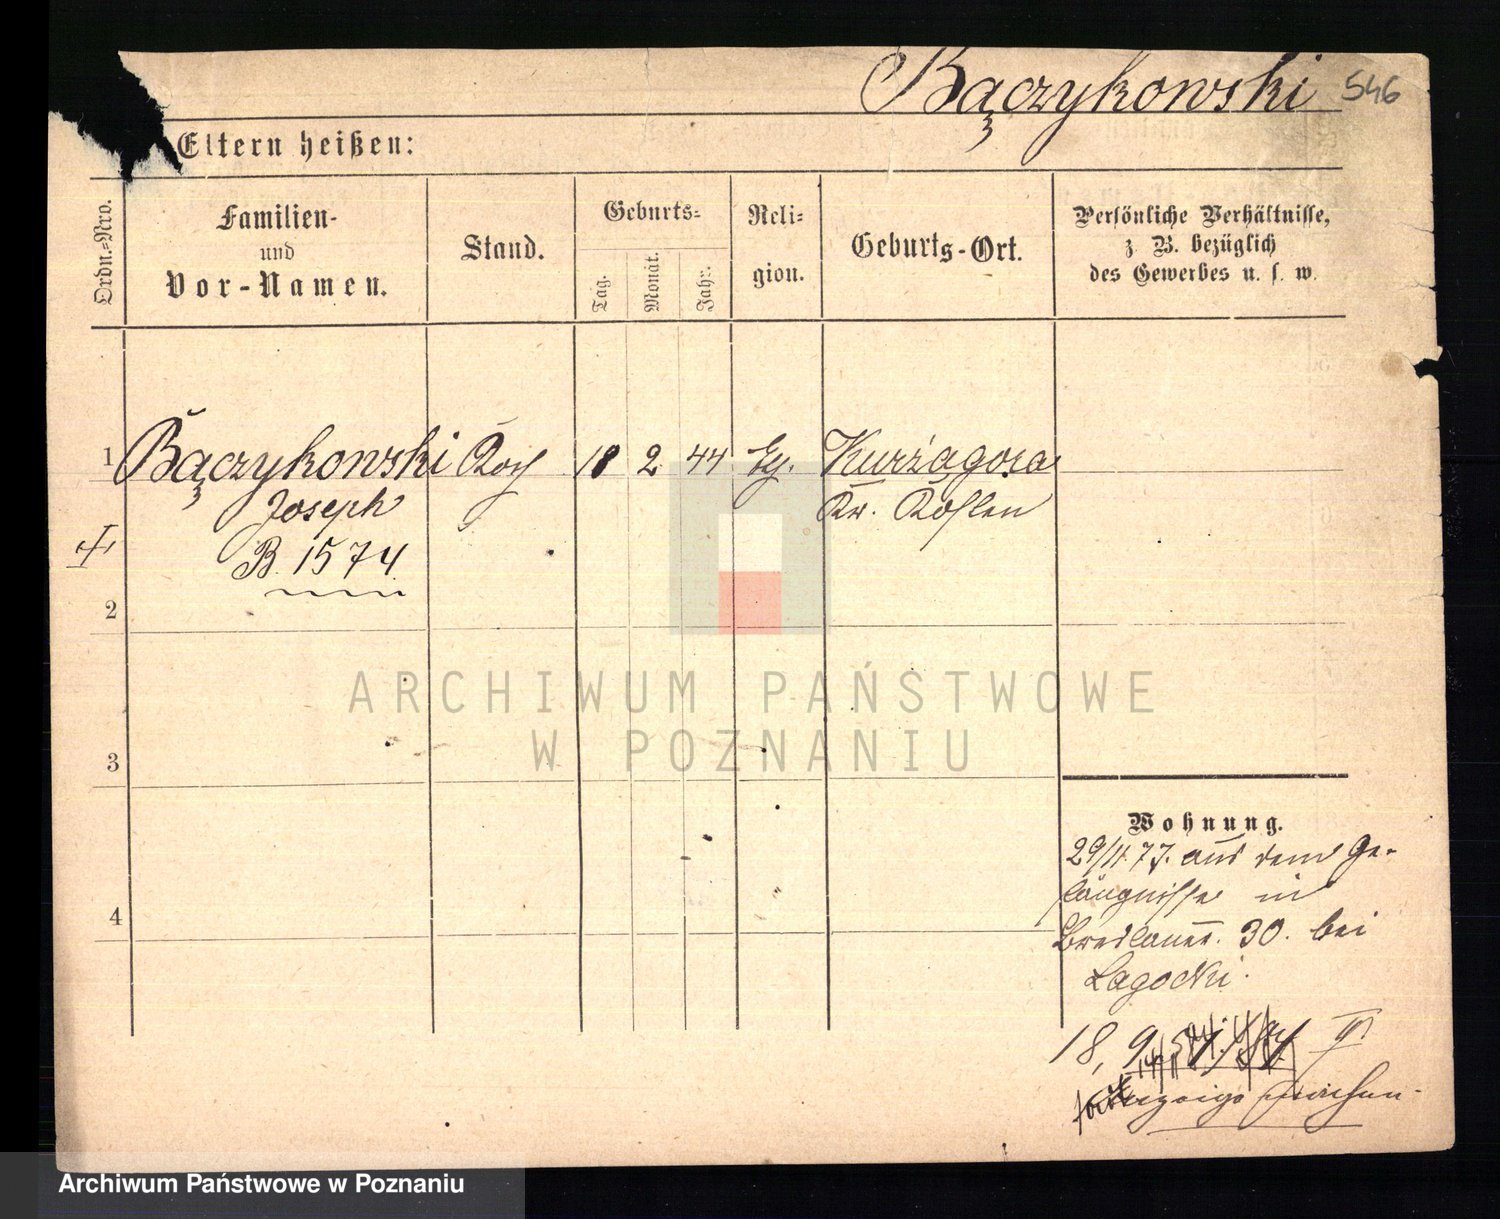 Bączykowski 546
Eltern heißen:
Ordn.=Nro.
Familien-
und
Vor-Namen.
Stand.
Geburts=
Tag.
Monat.
Jahr.
Reli=
gion.
Geburts-Ort.
Persönliche Verhältnisse,
z. B. bezüglich
des Gewerbes u. s. w.
1 Bączykowski Koch 18 2 44 Kurzagora
Joseph Kr. Kosten
B. 1574
2
3
4
Wohnung.
29/11.77. aus dem Ge-
fängnisse in
Breslauer. 30. bei
Lagocki.
18, 9.
ARCHIWUM PAŃSTWOWE
W POZNANIU
Archiwum Państwowe w Poznaniu